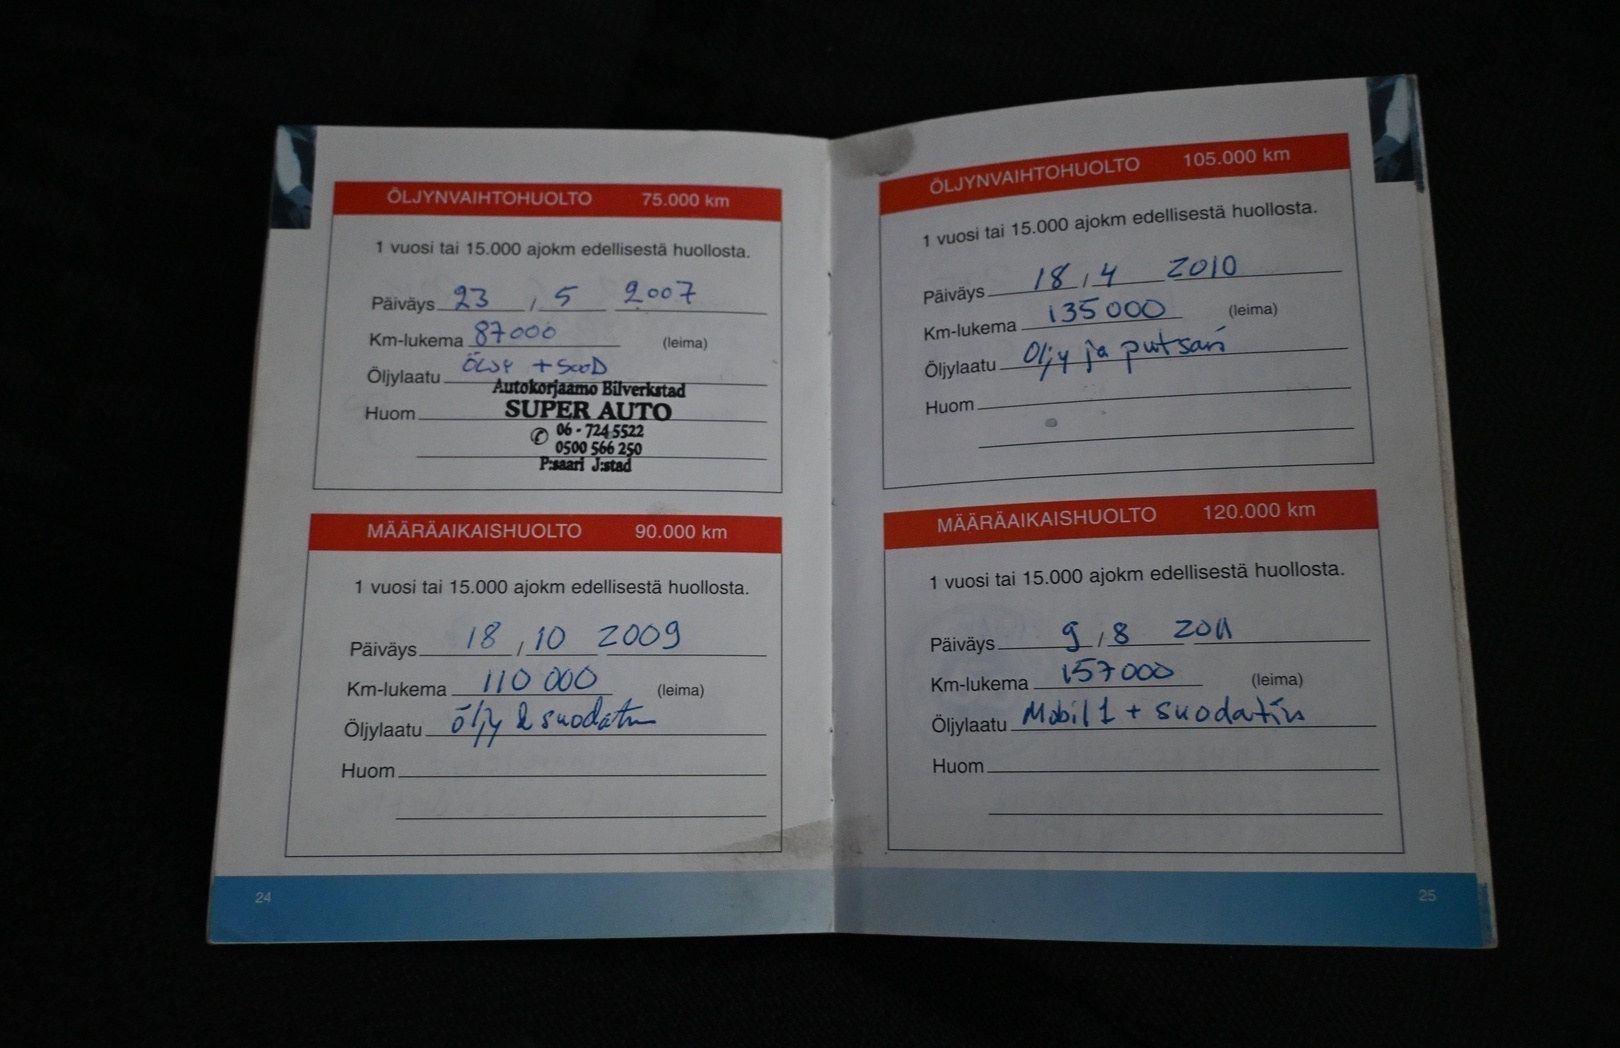 ÖLJYNVAIHTOHUOLTO 75.000 km
1 vuosi tai 15.000 ajokm edellisestä huollosta.
Päiväys 23 / 5 2007
Km-lukema 87000 (leima)
Öljylaatu ÖLJY + SUOD
Autokorjaamo Bilverkstad
Huom SUPER AUTO
06 - 724 5522
0500 566 250
P:saari J:stad
MÄÄRÄAIKAISHUOLTO 90.000 km
1 vuosi tai 15.000 ajokm edellisestä huollosta.
Päiväys 18 / 10 2009
Km-lukema 110 000 (leima)
Öljylaatu öljy & suodatin
Huom
24
ÖLJYNVAIHTOHUOLTO 105.000 km
1 vuosi tai 15.000 ajokm edellisestä huollosta.
Päiväys 18 / 4 2010
Km-lukema 135 000 (leima)
Öljylaatu Öljy ja putsari
Huom
MÄÄRÄAIKAISHUOLTO 120.000 km
1 vuosi tai 15.000 ajokm edellisestä huollosta.
Päiväys 9 / 8 2011
Km-lukema 157000 (leima)
Öljylaatu Mobil 1 + suodatin
Huom
25